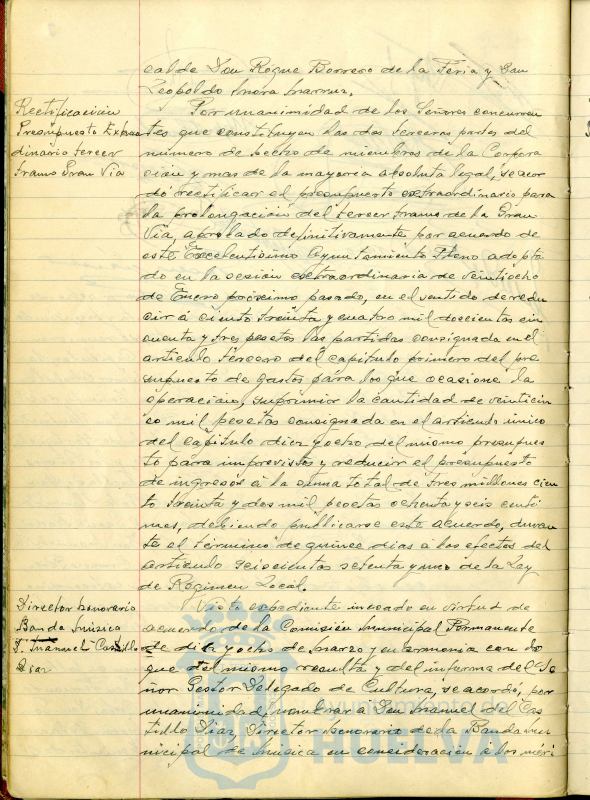 cal de Don Roque Borrero de la Feria y Don
Leopoldo Mora Marrus.
Rectificacion
Presupuesto Extraor
dinario tercer
tramo Gran Via
Por unanimidad de los Señores concurren
tes que constituyen las dos terceras partes del
numero de hecho de miembros de la Corpora
cion y mas de la mayoria absoluta legal, se acor
dó rectificar el presupuesto extraordinario para
la prolongación del tercer tramo de la Gran
Via, aprobado definitivamente por acuerdo de
este Excelentisimo Ayuntamiento Pleno adopta
do en la sesion extraordinaria de veintiocho
de Enero próximo pasado, en el sentido de redu
cir á ciento treinta y cuatro mil doscientas cin
cuenta y tres pesetas las partidas consignada en el
articulo tercero del capitulo primero del pre
supuesto de gastos para los que ocasione la
operacion, suprimir la cantidad de veinticin
co mil pesetas consignada en el articulo único
del capitulo diez y ocho del mismo presupues
to para imprevistos y reducir el presupuesto
de ingresos á la suma total de tres millones cien
to treinta y dos mil pesetas ochenta y seis centi
mos, debiendo publicarse este acuerdo, duran
te el término de quince dias á los efectos del
articulo seiscientos setenta y uno de la Ley
de Régimen Local.
Director honorario
Banda Música
D. Manuel Castillo
Diaz
Visto expediente incoado en virtud de
acuerdo de la Comisión Municipal Permanente
de diez y ocho de Marzo y en armonia con lo
que del mismo resulta y del informe del Se
ñor Gestor Delegado de Cultura, se acordó, por
unanimidad, nombrar a Don Manuel del Cas
tillo Diaz, Director honorario de la Banda Mu
nicipal de Música en consideracion á los méri
Ayuntamiento de
HUELVA